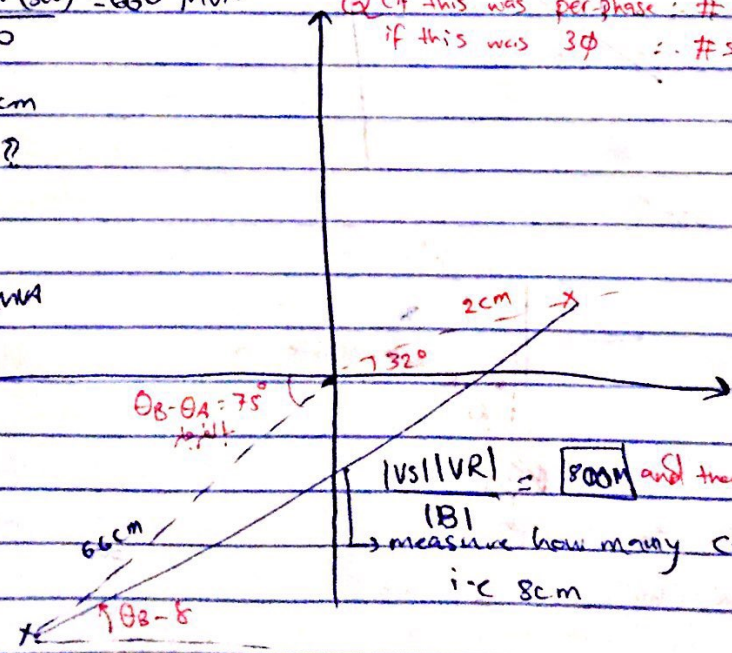 (if this was per-phase : #
if this was 3Φ : #
cm
?
MVA
2cm
32°
θB-θA = 75°
66cm
|VS||VR| / |B| = 800M and the
→ measure how many c
i.e 8cm
θB-δ